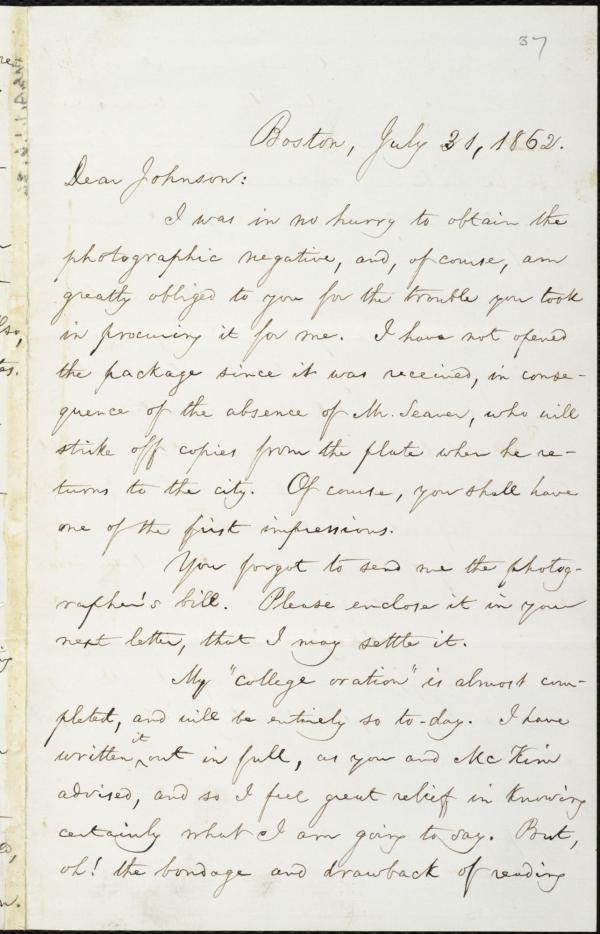 37
Boston, July 31, 1862.
Dear Johnson:
I was in no hurry to obtain the
photographic negative, and, of course, am
greatly obliged to you for the trouble you took
in procuring it for me. I have not opened
the package since it was received, in conse-
quence of the absence of Mr. Seaver, who will
strike off copies from the plate when he re-
turns to the city. Of course, you shall have
one of the first impressions.
You forgot to send me the photog-
rapher's bill. Please enclose it in your
next letter, that I may settle it.
My "college oration" is almost com-
pleted, and will be entirely so to-day. I have
written it out in full, as you and McKim
advised, and so I feel great relief in knowing
certainly what I am going to say. But,
oh! the bondage and drawback of reading